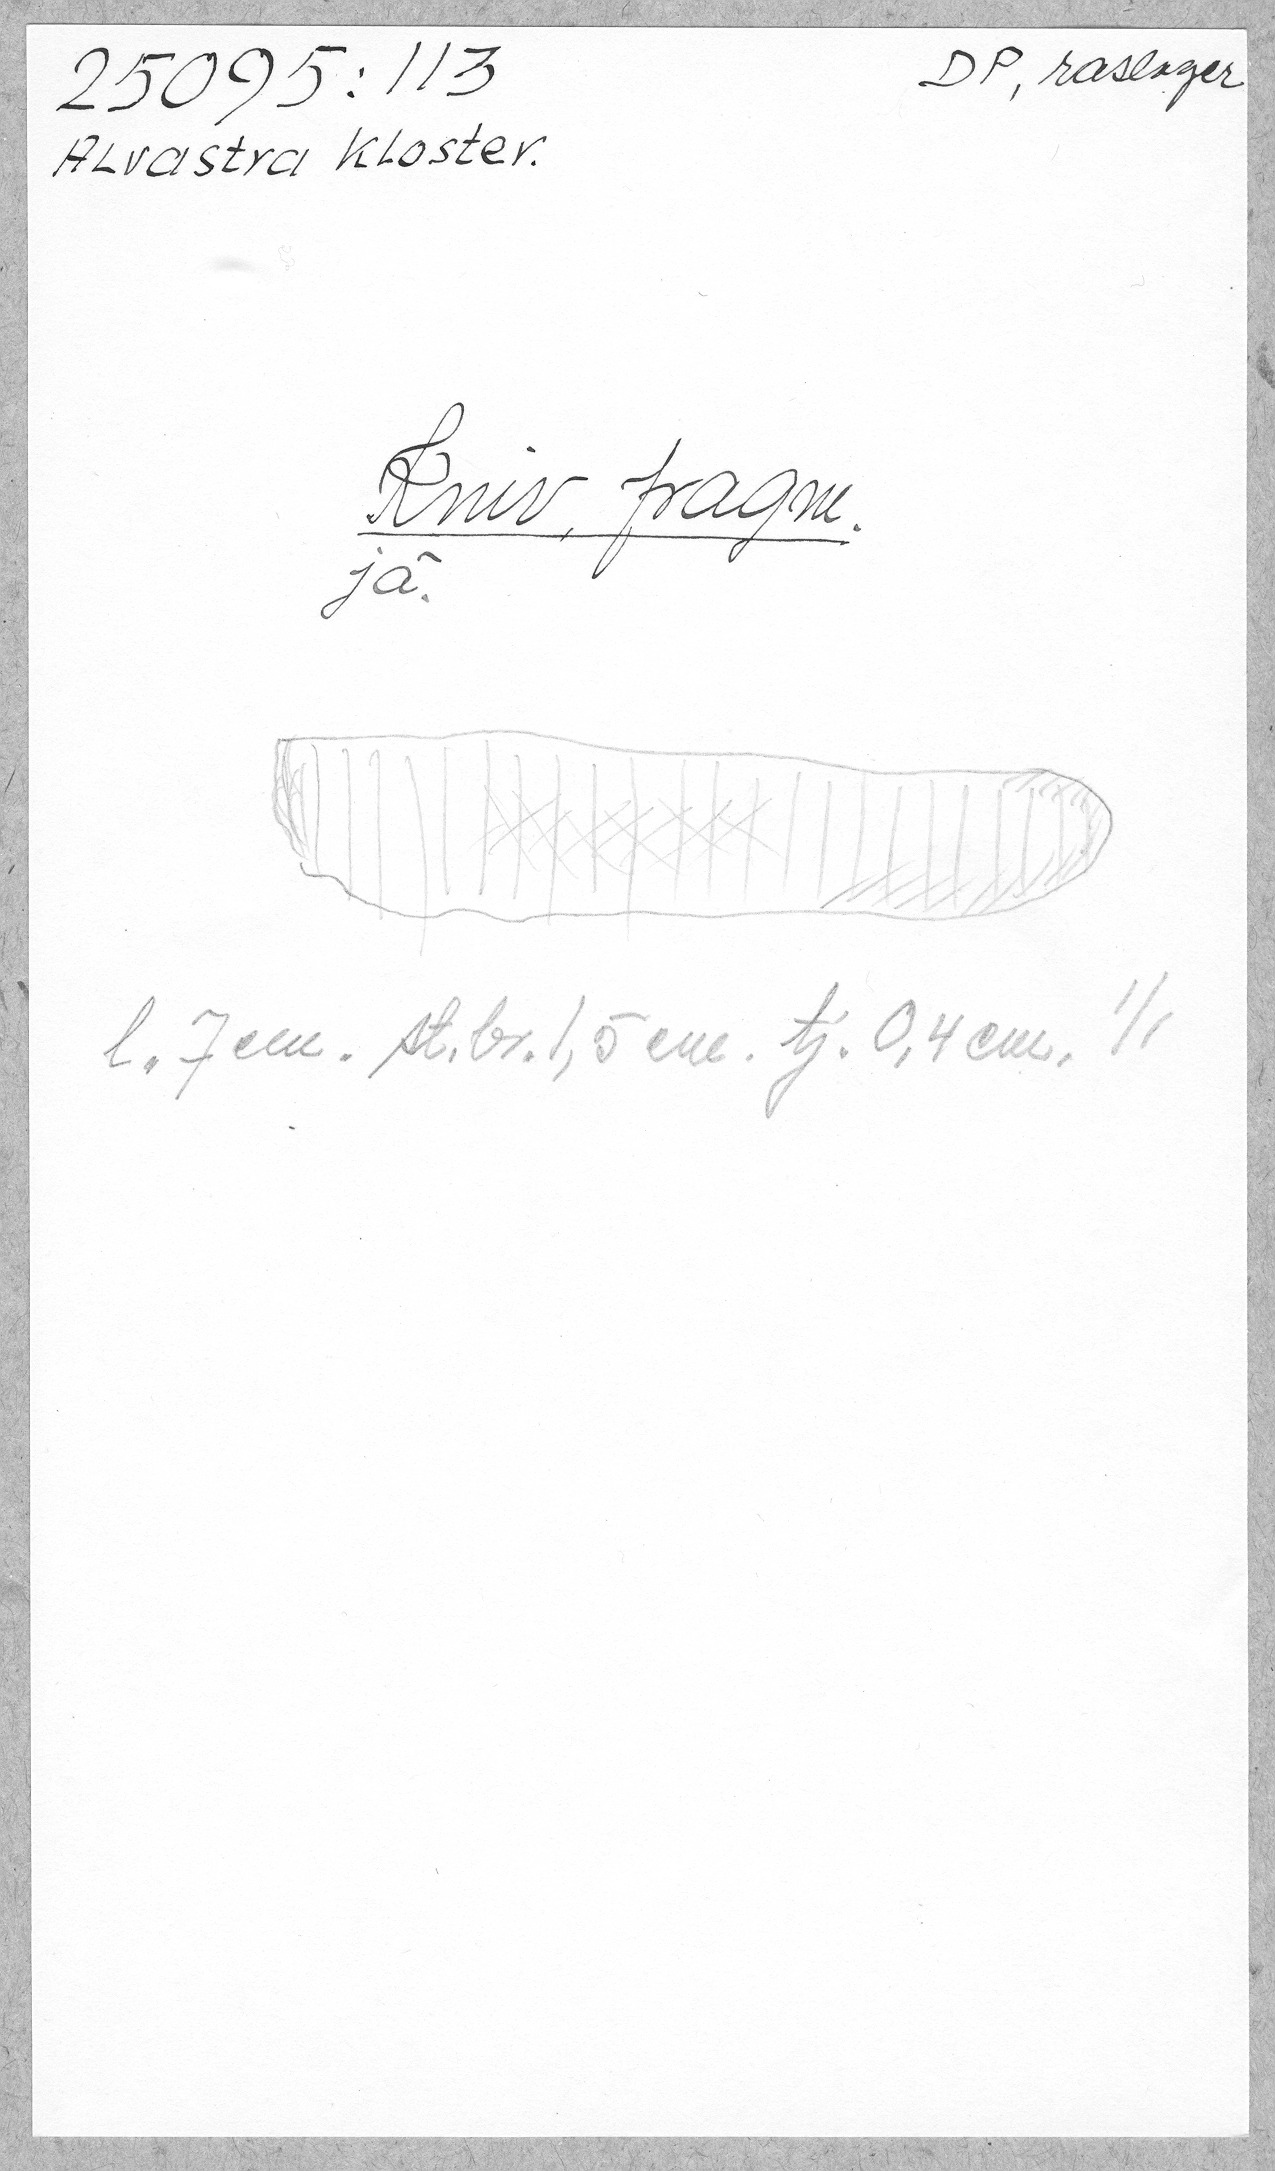 25095:113
DP, raslager
Alvastra kloster.
Kniv, fragm.
jä.
l. 7 cm. st. br. 1,5 cm. tj. 0,4 cm. 1/1